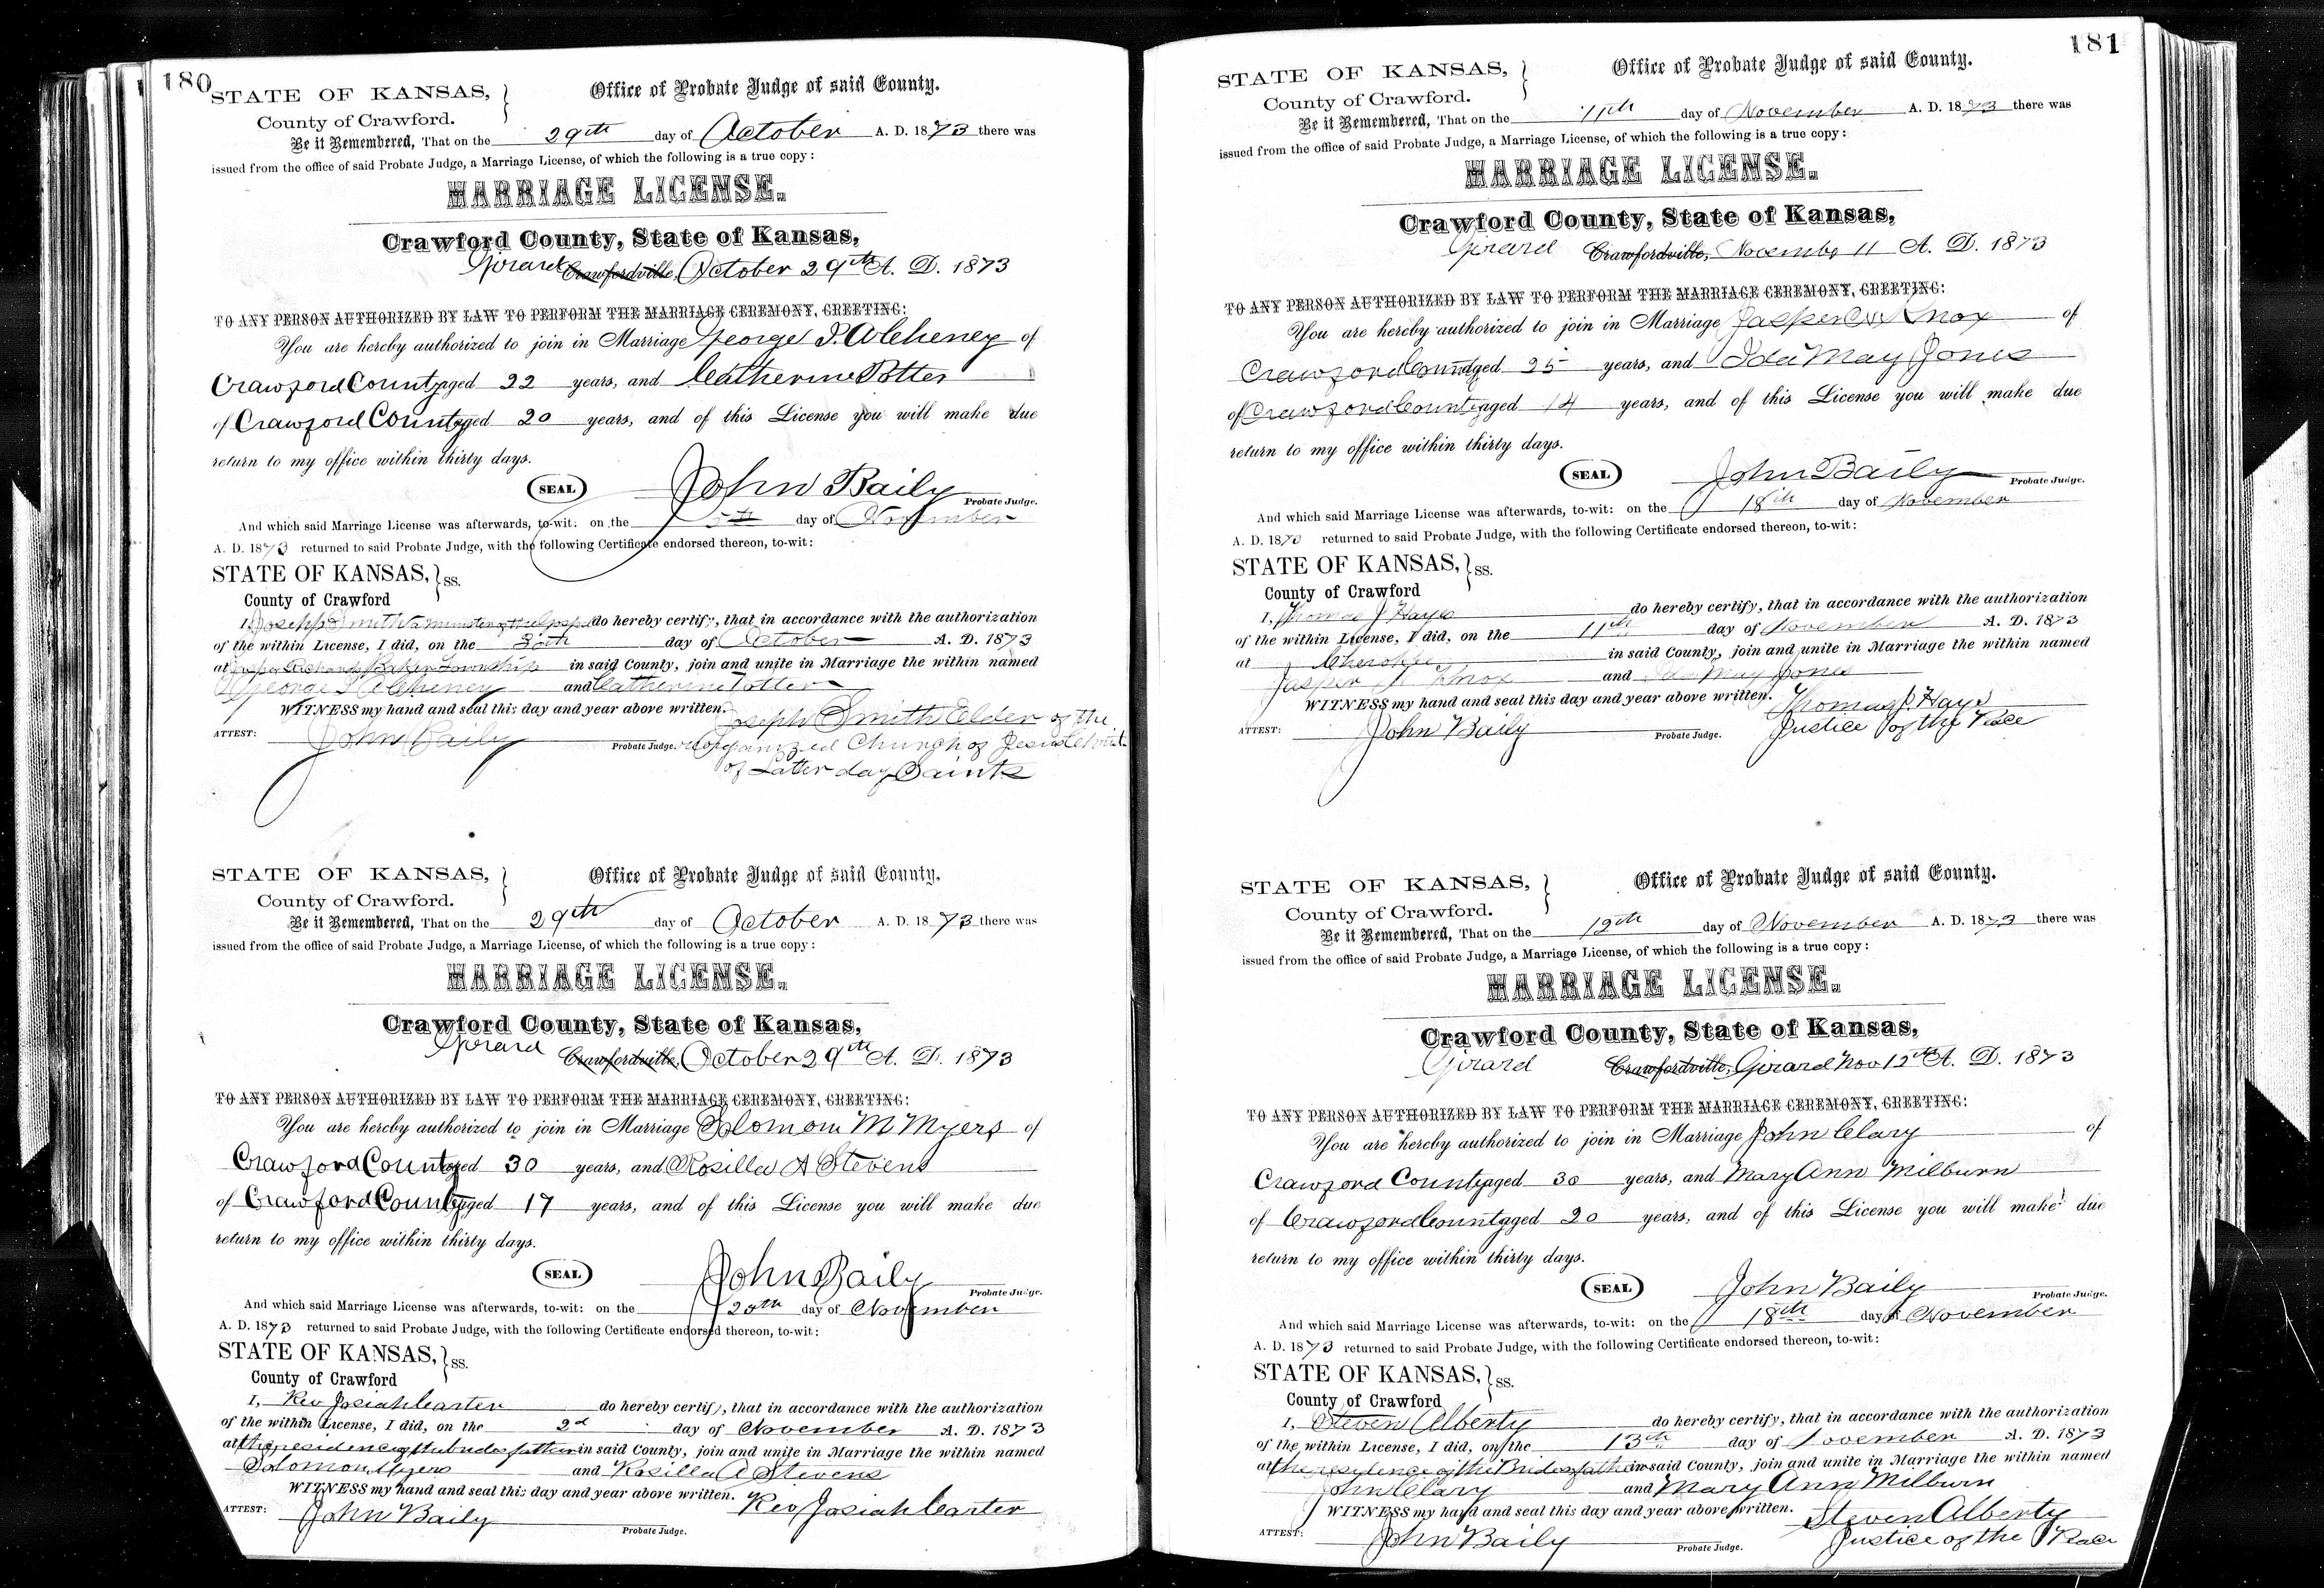 180
STATE OF KANSAS,
Office of Probate Judge of said County.
County of Crawford.
Be it Remembered, That on the 29th day of October A. D. 1873 there was
issued from the office of said Probate Judge, a Marriage License, of which the following is a true copy:
MARRIAGE LICENSE.
Crawford County, State of Kansas,
Girard Crawfordville, October 29th A. D. 1873
TO ANY PERSON AUTHORIZED BY LAW TO PERFORM THE MARRIAGE CEREMONY, GREETING:
You are hereby authorized to join in Marriage George of
Crawford County aged 22 years, and Catherine Potter
of Crawford County aged 20 years, and of this License you will make due
return to my office within thirty days.
SEAL John Baily
Probate Judge.
And which said Marriage License was afterwards, to-wit: on the 5th day of November
A. D. 1873 returned to said Probate Judge, with the following Certificate endorsed thereon, to-wit:
STATE OF KANSAS, ss.
County of Crawford
I, Joseph Smith a minister of the Gospel do hereby certify, that in accordance with the authorization
of the within License, I did, on the 30th day of October A. D. 1873
at Baker Township in said County, join and unite in Marriage the within named
George and Catherine Potter
WITNESS my hand and seal this day and year above written. Joseph Smith Elder of the
ATTEST: John Baily Probate Judge. Reorganized Church of Jesus Christ
of Latter day Saints
STATE OF KANSAS,
Office of Probate Judge of said County.
County of Crawford.
Be it Remembered, That on the 29th day of October A. D. 1873 there was
issued from the office of said Probate Judge, a Marriage License, of which the following is a true copy:
MARRIAGE LICENSE.
Crawford County, State of Kansas,
Girard Crawfordville, October 29th A. D. 1873
TO ANY PERSON AUTHORIZED BY LAW TO PERFORM THE MARRIAGE CEREMONY, GREETING:
You are hereby authorized to join in Marriage Solomon M Myers of
Crawford County aged 30 years, and Rosilla A Stevens
of Crawford County aged 17 years, and of this License you will make due
return to my office within thirty days.
SEAL John Baily
Probate Judge.
And which said Marriage License was afterwards, to-wit: on the 20th day of November
A. D. 1873 returned to said Probate Judge, with the following Certificate endorsed thereon, to-wit:
STATE OF KANSAS, ss.
County of Crawford
I, Rev Josiah Carter do hereby certify, that in accordance with the authorization
of the within License, I did, on the 2d day of November A. D. 1873
at the residence of the brides father in said County, join and unite in Marriage the within named
Solomon Myers and Rosilla A Stevens
WITNESS my hand and seal this day and year above written. Rev Josiah Carter
ATTEST: John Baily Probate Judge.
181
STATE OF KANSAS,
Office of Probate Judge of said County.
County of Crawford.
Be it Remembered, That on the 11th day of November A. D. 1873 there was
issued from the office of said Probate Judge, a Marriage License, of which the following is a true copy:
MARRIAGE LICENSE.
Crawford County, State of Kansas,
Girard Crawfordville, November 11 A. D. 1873
TO ANY PERSON AUTHORIZED BY LAW TO PERFORM THE MARRIAGE CEREMONY, GREETING:
You are hereby authorized to join in Marriage Jasper Knox of
Crawford County aged 25 years, and Ida May Jones
of Crawford County aged 14 years, and of this License you will make due
return to my office within thirty days.
SEAL John Baily
Probate Judge.
And which said Marriage License was afterwards, to-wit: on the 18th day of November
A. D. 1873 returned to said Probate Judge, with the following Certificate endorsed thereon, to-wit:
STATE OF KANSAS, ss.
County of Crawford
I, Thomas J Hays do hereby certify, that in accordance with the authorization
of the within License, I did, on the 11th day of November A. D. 1873
at Cherokee in said County, join and unite in Marriage the within named
Jasper Knox and Ida May Jones
WITNESS my hand and seal this day and year above written. Thomas J Hays
ATTEST: John Baily Probate Judge. Justice of the Peace
STATE OF KANSAS,
Office of Probate Judge of said County.
County of Crawford.
Be it Remembered, That on the 12th day of November A. D. 1873 there was
issued from the office of said Probate Judge, a Marriage License, of which the following is a true copy:
MARRIAGE LICENSE.
Crawford County, State of Kansas,
Girard Crawfordville, Girard Nov 12th A. D. 1873
TO ANY PERSON AUTHORIZED BY LAW TO PERFORM THE MARRIAGE CEREMONY, GREETING:
You are hereby authorized to join in Marriage John Clary of
Crawford County aged 30 years, and Mary Ann Milburn
of Crawford County aged 20 years, and of this License you will make due
return to my office within thirty days.
SEAL John Baily
Probate Judge.
And which said Marriage License was afterwards, to-wit: on the 18th day of November
A. D. 1873 returned to said Probate Judge, with the following Certificate endorsed thereon, to-wit:
STATE OF KANSAS, ss.
County of Crawford
I, Steven Alberty do hereby certify, that in accordance with the authorization
of the within License, I did, on the 13th day of November A. D. 1873
at the residence of the Brides father in said County, join and unite in Marriage the within named
John Clary and Mary Ann Milburn
WITNESS my hand and seal this day and year above written. Steven Alberty
ATTEST: John Baily Probate Judge. Justice of the Peace